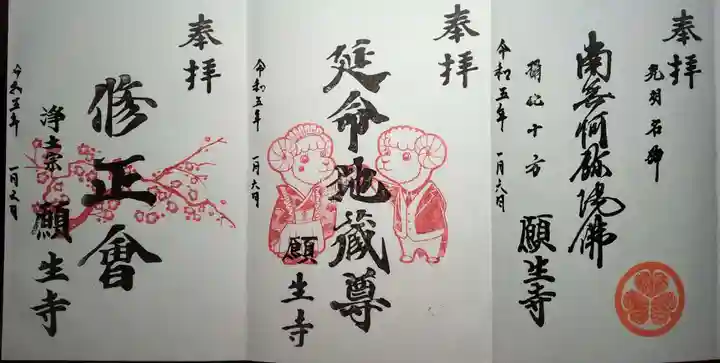 奉拝
光明名号
南無阿弥陀佛
摂化十方
願生寺
令和五年 一月六日
奉拝
延命地蔵尊
願生寺
令和五年 一月六日
奉拝
修正會
浄土宗 願生寺
令和五年 一月六日